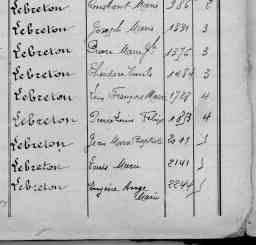 Lebreton Constant Marie 386 2
Lebreton Joseph Marie 1331 3
Lebreton Pierre Marie 1576 3
Lebreton Théodore Emile 1484 3
Lebreton Léon François Marie 1728 4
Lebreton Pierre Louis Félix 1873 4
Lebreton Jean Marie Baptiste 2049 5
Lebreton Louis Marie 2141 5
Lebreton Eugène Ange 2244 5
Marie